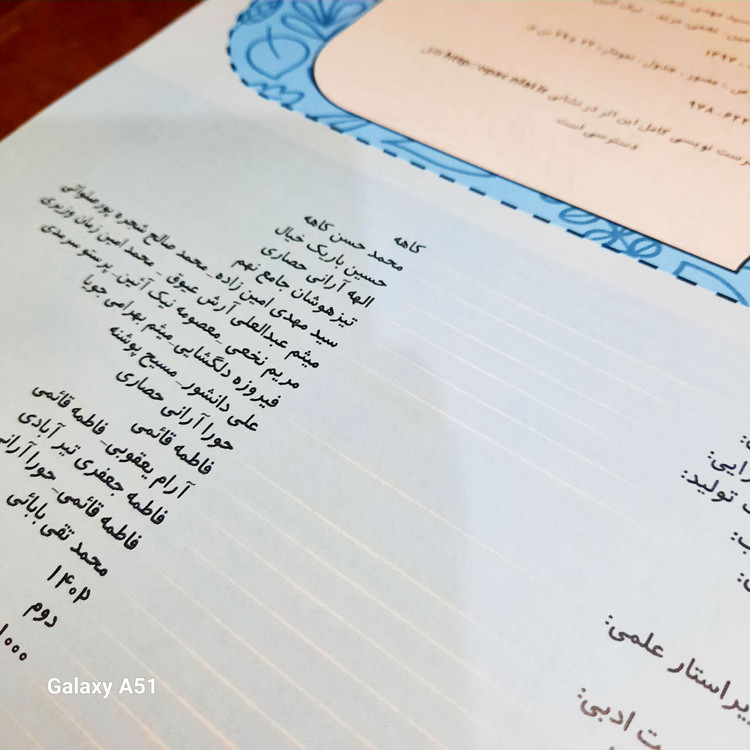 سید مهدی
۱۳۹۷
مصور، جدول، نمودار، ۲۲*۲۹ س م
۹۷۸-۶۲۲
فهرست نویسی کامل این اثر در نشانی http://opac.nlai.ir قابل
دسترسی است.
کاهه
محمد حسن کاهه
حسین باریک خیال
الهه آرانی حصاری
تیزهوشان جامع نهم
سید مهدی امین زاده_ محمد صالح شجره پورصلواتی
میثم عبدالعلی_ آرش عیوق _ محمد امین زمان وزیری
مریم نخعی_ معصومه نیک آئین_ پرستو سرمدی
فیروزه دلگشایی_ میثم بهرامی جویا
علی دانشور_ مسیح پوشنه
حورا آرانی حصاری
فاطمه قائمی
آرام یعقوبی_ فاطمه قائمی
فاطمه جعفری تیرآبادی
فاطمه قائمی_ حورا آرانی
محمد تقی بابائی
۱۴۰۲
دوم
۱۰۰۰
تولید:
ویراستار علمی:
ادبی:
Galaxy A51